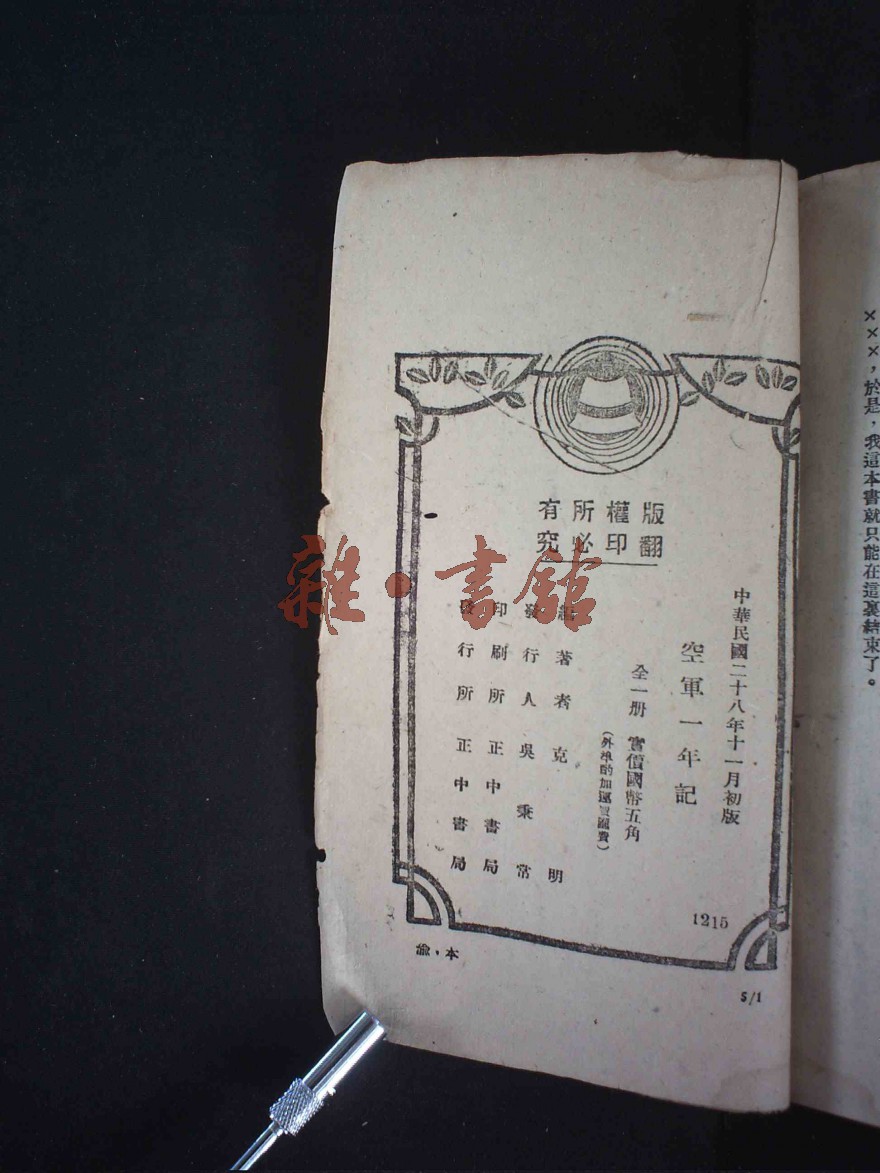 ×××，於是，我這本書就只能在這裏結束了。
版權所有
翻印必究
中華民國二十八年十一月初版
空軍一年記
全一册 實價國幣五角
（外埠酌加運費匯費）
編著者 克明
發行人 吳秉常
印刷所 正中書局
發行所 正中書局
1215
本，渝
5/1
雜·書館